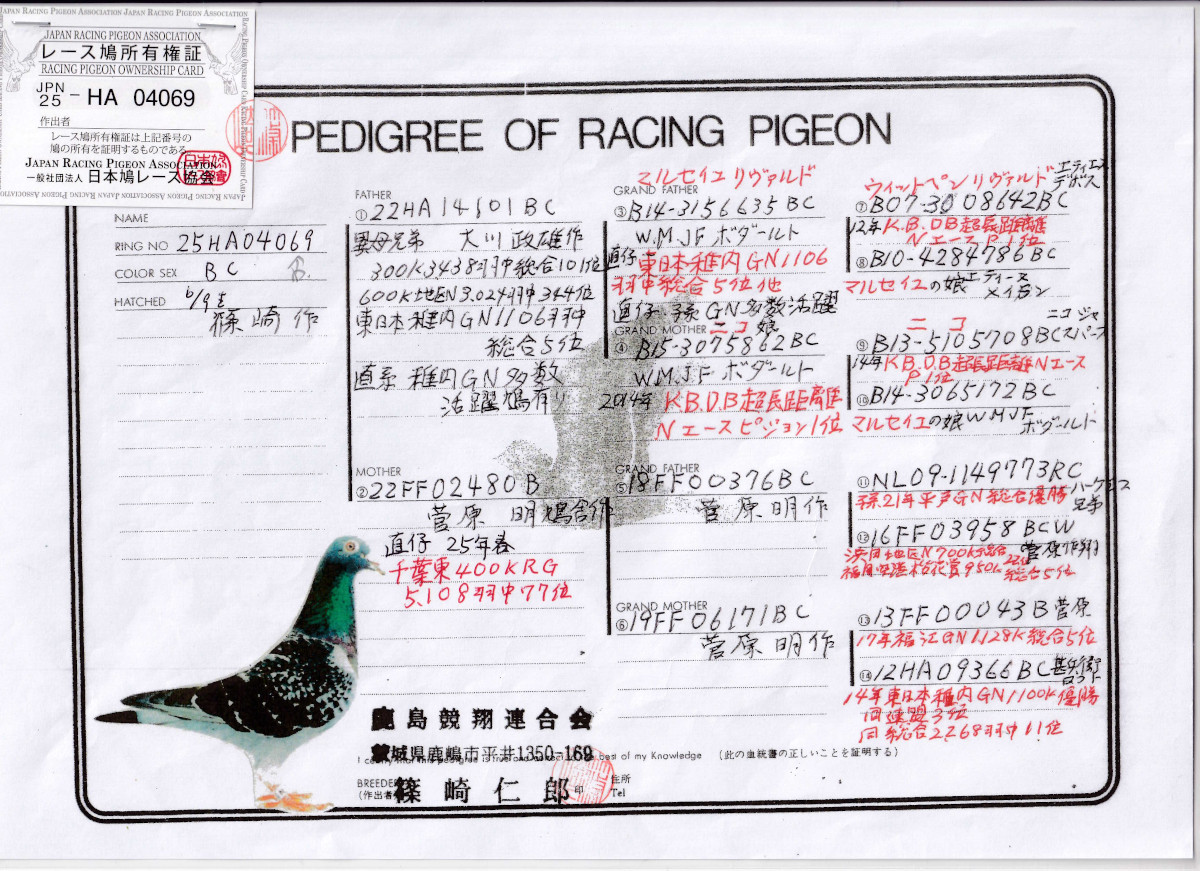 JAPAN RACING PIGEON ASSOCIATION
レース鳩所有権証
RACING PIGEON OWNERSHIP CARD
JPN
25 - HA 04069
作出者
レース鳩所有権証は上記番号の
鳩の所有を証明するものである
JAPAN RACING PIGEON ASSOCIATION
一般社団法人 日本鳩レース協会
PEDIGREE OF RACING PIGEON
NAME
RING NO 25HA04069
COLOR SEX BC
HATCHED 6/9生
篠崎 作
FATHER
①22HA14601BC
異母兄弟 大川政雄作
300K3438羽中総合101位
600K地区N3.024羽中344位
東日本稚内GN1106羽中
総合5位
直系 稚内GN多数
活躍鳩有り
MOTHER
②22FF02480B
菅原 明鳩舎作
直仔 25年春
千葉東400KRG
5,108羽中77位
マルセイユ リヴァルド
GRAND FATHER
③B14-3156635BC
W.M.JF ボダールト
直仔 東日本稚内GN1106
羽中総合5位他
直仔 孫GN多数活躍
GRAND MOTHER ニコ 娘
④B15-3075862BC
W.M.JF ボダールト
2014年 K.B.D.B超長距離
Nエースピジョン1位
GRAND FATHER
⑤18FF00376BC
菅原明作
GRAND MOTHER
⑥19FF06171BC
菅原明作
ウィットペン リヴァルド エティエンヌ
デボス
⑦B07-3008642BC
12年K.B.DB超長距離
NエースP.1位
⑧B10-4284786BC
マルセイユの娘 エティーヌ
メイラン
ニコ ニコ ジャ
⑨B13-5105708BC スパース
14年K.B.D.B超長距離Nエース
P1位
⑩B14-3065172BC
マルセイユの娘WMJF
ボダールト
⑪NL09-1149773RC
孫21年平戸GN総合優勝 ハークエス
兄弟
⑫16FF03958BCW
菅原作翔
総合5位
⑬13FF00043B菅原
17年福江GN1128K総合5位
⑭12HA09366BC 甚兵衛
ロフト
14年東日本稚内GN1100K優勝
同連盟3位
同総合2268羽中11位
鹿島競翔連合会
茨城県鹿嶋市平井1350-169
best of my Knowledge (此の血統書の正しいことを証明する)
BREEDER
(作出者) 篠崎仁郎 印
住所
Tel